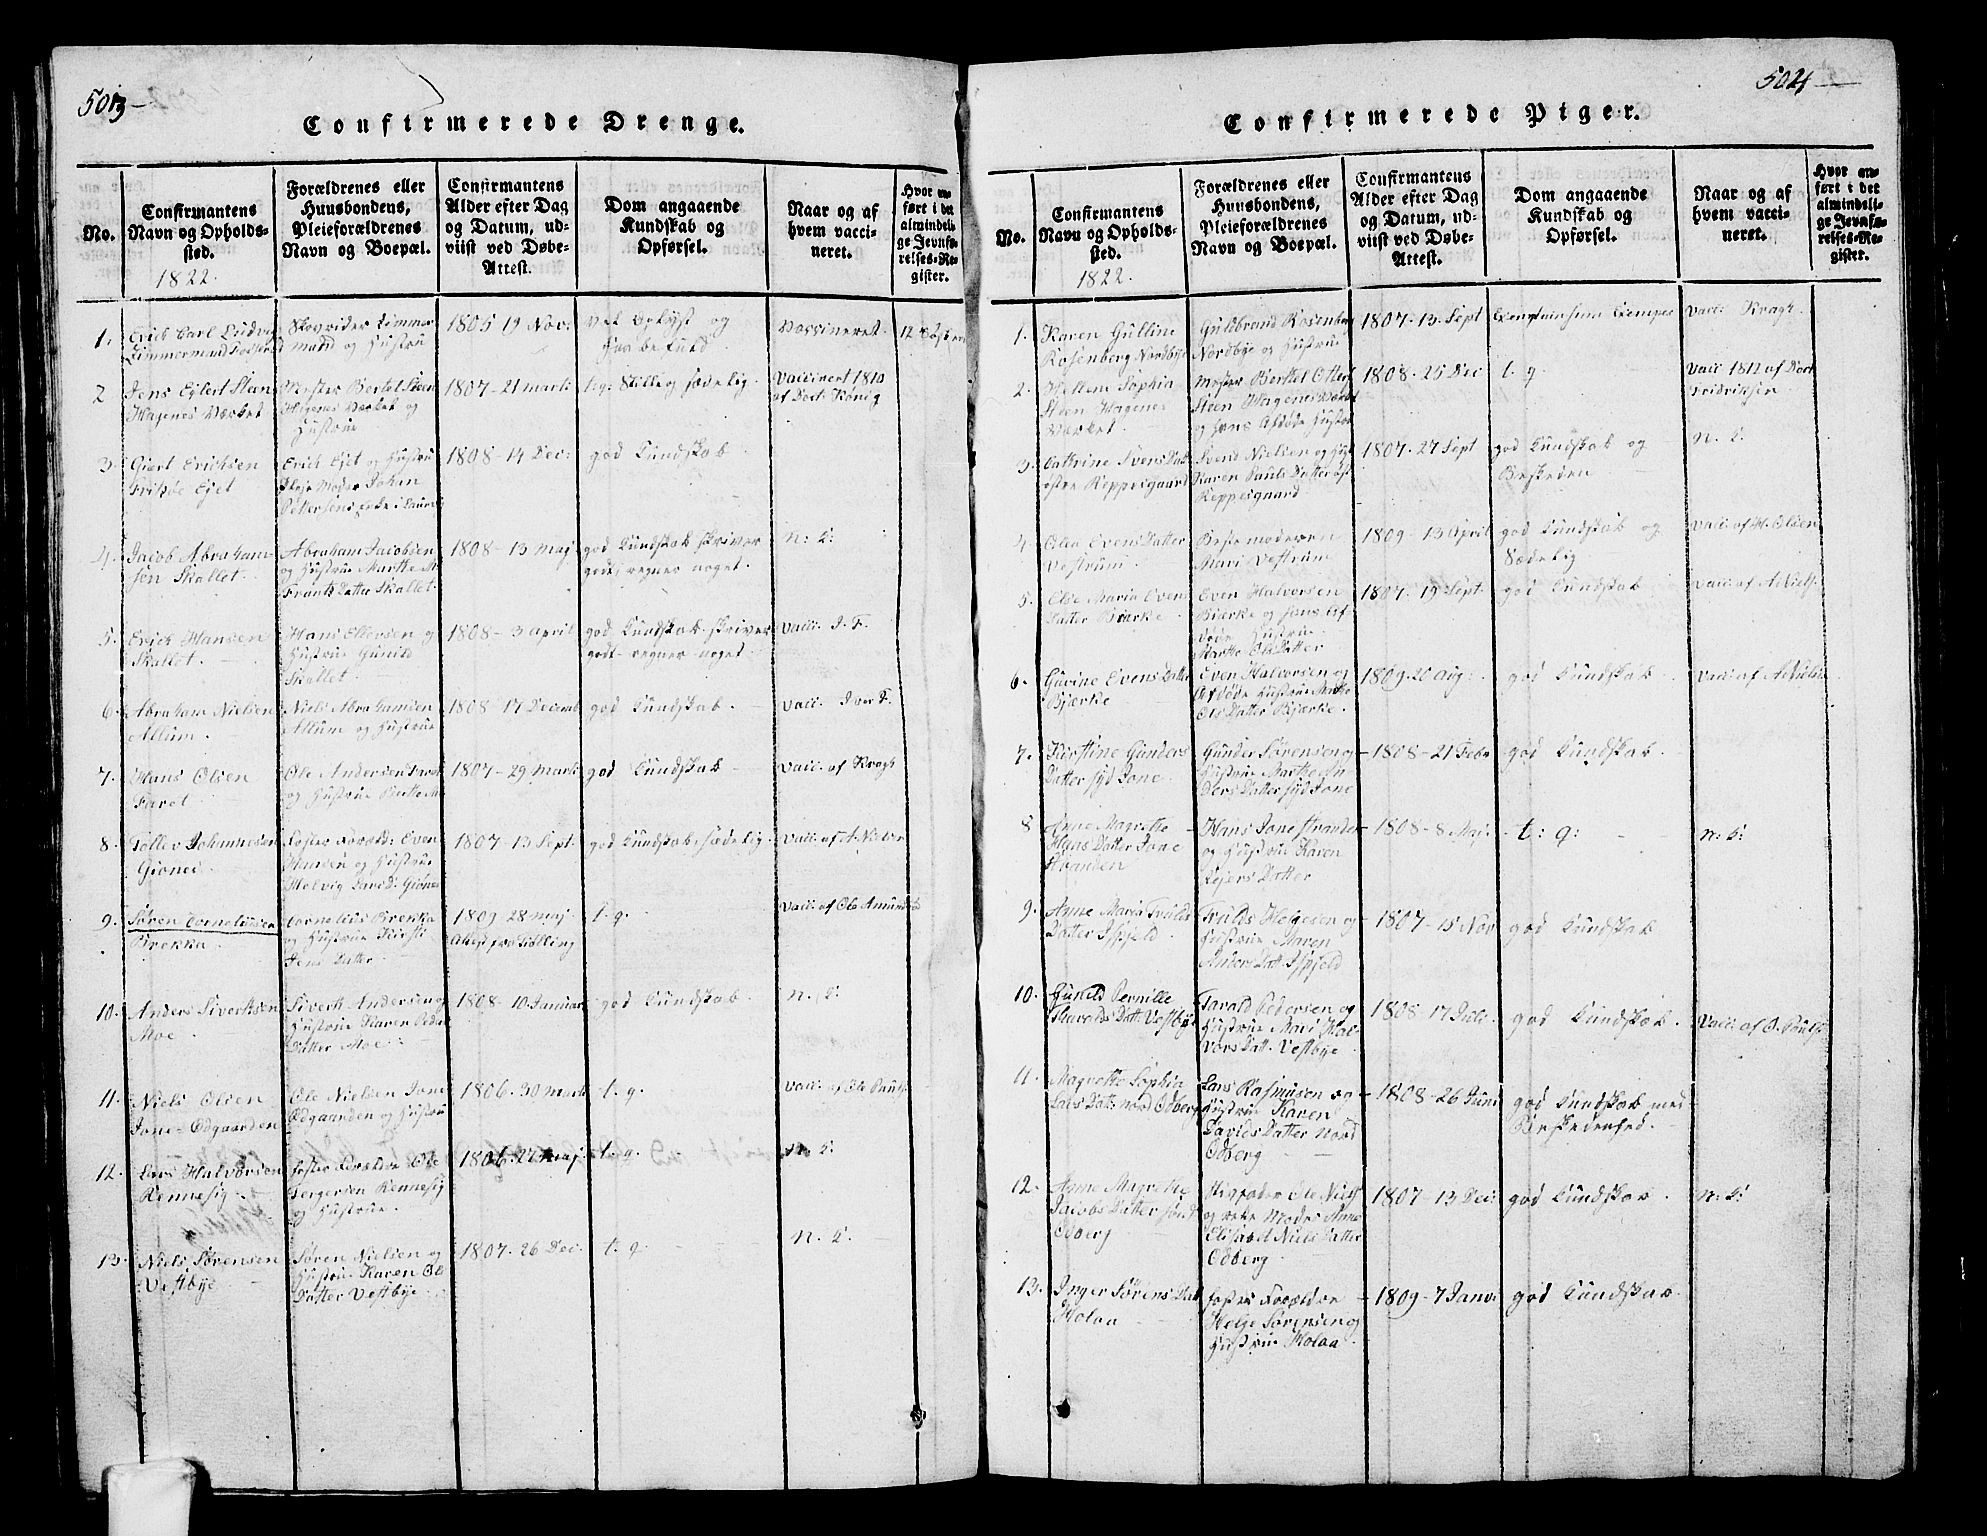 5013-
Confirmerede Drenge.
No.
Confirmantens
Navn og Opholds-
sted.
1822.
Forældrenes eller
Huusbondens,
Pleieforældrenes
Navn og Boepæl.
Confirmantens
Alder efter Dag
og Datum, ud-
viist ved Døbe-
Attest.
Dom angaaende
Kundskab og
Opførsel.
Naar og af
hvem vacci-
neret.
Hvor an-
ført i det
almindeli-
ge Jevnfø-
relses-Re-
gister.
1.
Erich Carl Ludvig
Skovrider Zimmer
mand og Hustrue
1805 19 Nov:
vel Oplyst og
Vaccineret
2
Jens Eylert Steen
Hagenes Værket
Mester Bertel Steen
Hagenes Værket og
Hustrue
1807-21 marti
t: g: Stille og sædelig.
Vaccinert 1810
af Doct: König
3
Giert Erichsen
Friksøe Ejet
Erich Ejet og Hustrue
Pleje Moder Johan
Pettersens Enke i Laurvig
1808-14 Dec:
god Kundskab
4.
Jacob Abraham-
sen Skallet.
Abraham Jacobsen
og Hustrue Marthe M.
Frants Datter Skallet.
1808-13 maj
god Kundskab skriver
godt, regner noget.
n: L:
5.
Erich Hansen
Skallet.
Hans Ellersen og
Hustrue Gunild
Skallet.
1808-3 april
god Kundskab skriver
godt - regner noget.
Vacc: I. F.
6.
Abraham Nielsen
Allum.
Niels Abrahamsen
Allum og Hustrue
1808-17 Decemb
god Kundskab.
Vacc: Iver F.
7.
Hans Olsen
Faret
Ole Andersen Faret
og Hustrue Birthe M.
1807-29 Marti
god Kundskab
Vacc: af Kragh
8.
Tollev Johannesen
Gionei.
Foster Foræld: Even
Hansen og Hustrue
Helvig David: Giønei
1807-13 Sept.
god Kundskab, sædelig.
Vacc: af A. Nielser
9.
Søren Corneliusen
Brekka
Cornelius Brekka
og Hustrue Kirsti
Jens Datter
1809 28 maj
Attest fra Siølling
t. g.
Vacc: af Ole Amunds
10.
Anders Siverthsen
Moe
Siverth Andersen og
Hustrue Karen Peder
Datter Moe
1808-10 Januar
god Kundskab.
n. L:
11.
Niels Olsen
Jone-Odgaarden
Ole Nielsen Jone
Odgaarden og Hustrue
1806-30 Marti
t. g.
Vacc: af Ole Pauls
12.
Lars Halvorsen
Rennesig
foster Forældre Ole
Tergersen Rennesig
og Hustrue.
1806-27 maj.
t. g.
n L:
13.
Niels Sørensen
Vestbye
Søren Nielsen og
Hustrue Karen Ols
Datter Vestbye.
1807-26 Dec.
t. g.
n. L.
5024
Confirmerede Piger.
No.
Confirmantens
Navn og Opholds-
sted.
1822.
Forældrenes eller
Huusbondens,
Pleieforældrenes
Navn og Boepæl.
Confirmantens
Alder efter Dag
og Datum, ud-
viist ved Døbe-
Attest.
Dom angaaende
Kundskab og
Opførsel.
Naar og af
hvem vacci-
neret.
Hvor an-
ført i det
almindeli-
ge Jevnfø-
relses-Re-
gister.
1.
Karen Gulline
Rosenberg Nordbye
Guldbrand Rosenberg
Nordbye og Hustrue
1807-13. Sept
Vacc: Kragh.
2.
Hellem Sophia
Steen Hagenes
Værket.
Mester Berthel Otters
Steen Hagenes Værket
og hans Afdøde Hustrue
1808-25 Dec
t. g.
Vacc: 1812 af Doct
Fridrichsen
3.
Cathrine Svens Dat
østre Reppesgaard
Svend Nielsen og Hust
Karen Pauls Datter øst
Reppesgaard
1807-27 Sept
god Kundskab og
Beskeden
n. L.
4.
Olea Evens Datter
Vestrum.
Bestemoderen
Mari Vestrum
1809-13 April
god Kundskab og
Sædelig
Vacc: af H. Olsen
5.
Else Maria Even
Datter Bierke
Even Halvorsen
Bierke og hans Af-
døde Hustrue
Marthe Ols Datter
1807-19 Sept.
god Kundskab
Vacc: af A Niels:
6.
Guvine Evens Datter
Bjærke
Even Halvorsen og
Afdøde Hustrue Marthe
Ols Datter Bjærke.
1809-20 Aug:
god Kundskab
Vacc: af A Nielsen
7.
Kirstine Gunders
Datter syd Jone.
Gunder Sørensen og
Hustrue Marthe An
ders Datter syd Jone
1808-21 Febr
god Kundskab.
8
Anne Magrethe
Hans Datter Jone
Stranden
Hans Jone stranden
og Hustrue Karen
Lejers Datter
1808-8 Maj.
t: g:
n: L:
9.
Anne Maria Truls
Datter Ifsjeld.
Truls Helgesen og
Hustrue Maren
Anders Datt: Ifsjeld
1807-15 Nov
god Kundskab
10.
Gunild Pernille
Tharalds Datt: Vestbye
Tarald Pedersen og
Hustrue Mari Hal-
vors Datt. Vestbye.
1808-17 Julii.
god Kundskab.
Vacc: af O. Pauls
11.
Magrethe Sophia
Lars Datt: nord Odberg
Lars Rasmusen og
Hustrue Karen
Davids Datter Nord
Odberg
1808-26 Juni
god Kundskab med
Beskedenhed.
12.
Anne Magrethe
Jacobs Datter søndr
Odberg
Stiffader Ole Niels
og rette Moder Anne
Elisabet Niels Datter
Odberg
1807-13 Dec:
god Kundskab.
n: L:
13.
Inger Sørens Dat
Holaa
foster Forældre
Helje Sørensen og
Hustrue Holaa.
1809-7 Janv:
god Kundskab.